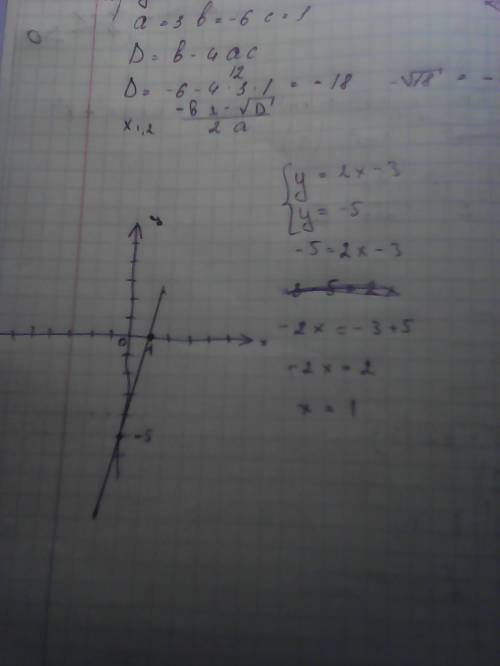 a = 3 b = -6 c = 1
D = b - 4 a c
12
D = -6 - 4 · 3 · 1 = -18 -√18 = -
x₁,₂ -b ± √D / 2 a
{ y = 2x - 3
y = -5
-5 = 2x - 3
-2x = -3 + 5
-2x = 2
x = 1
y
0
1
x
-5